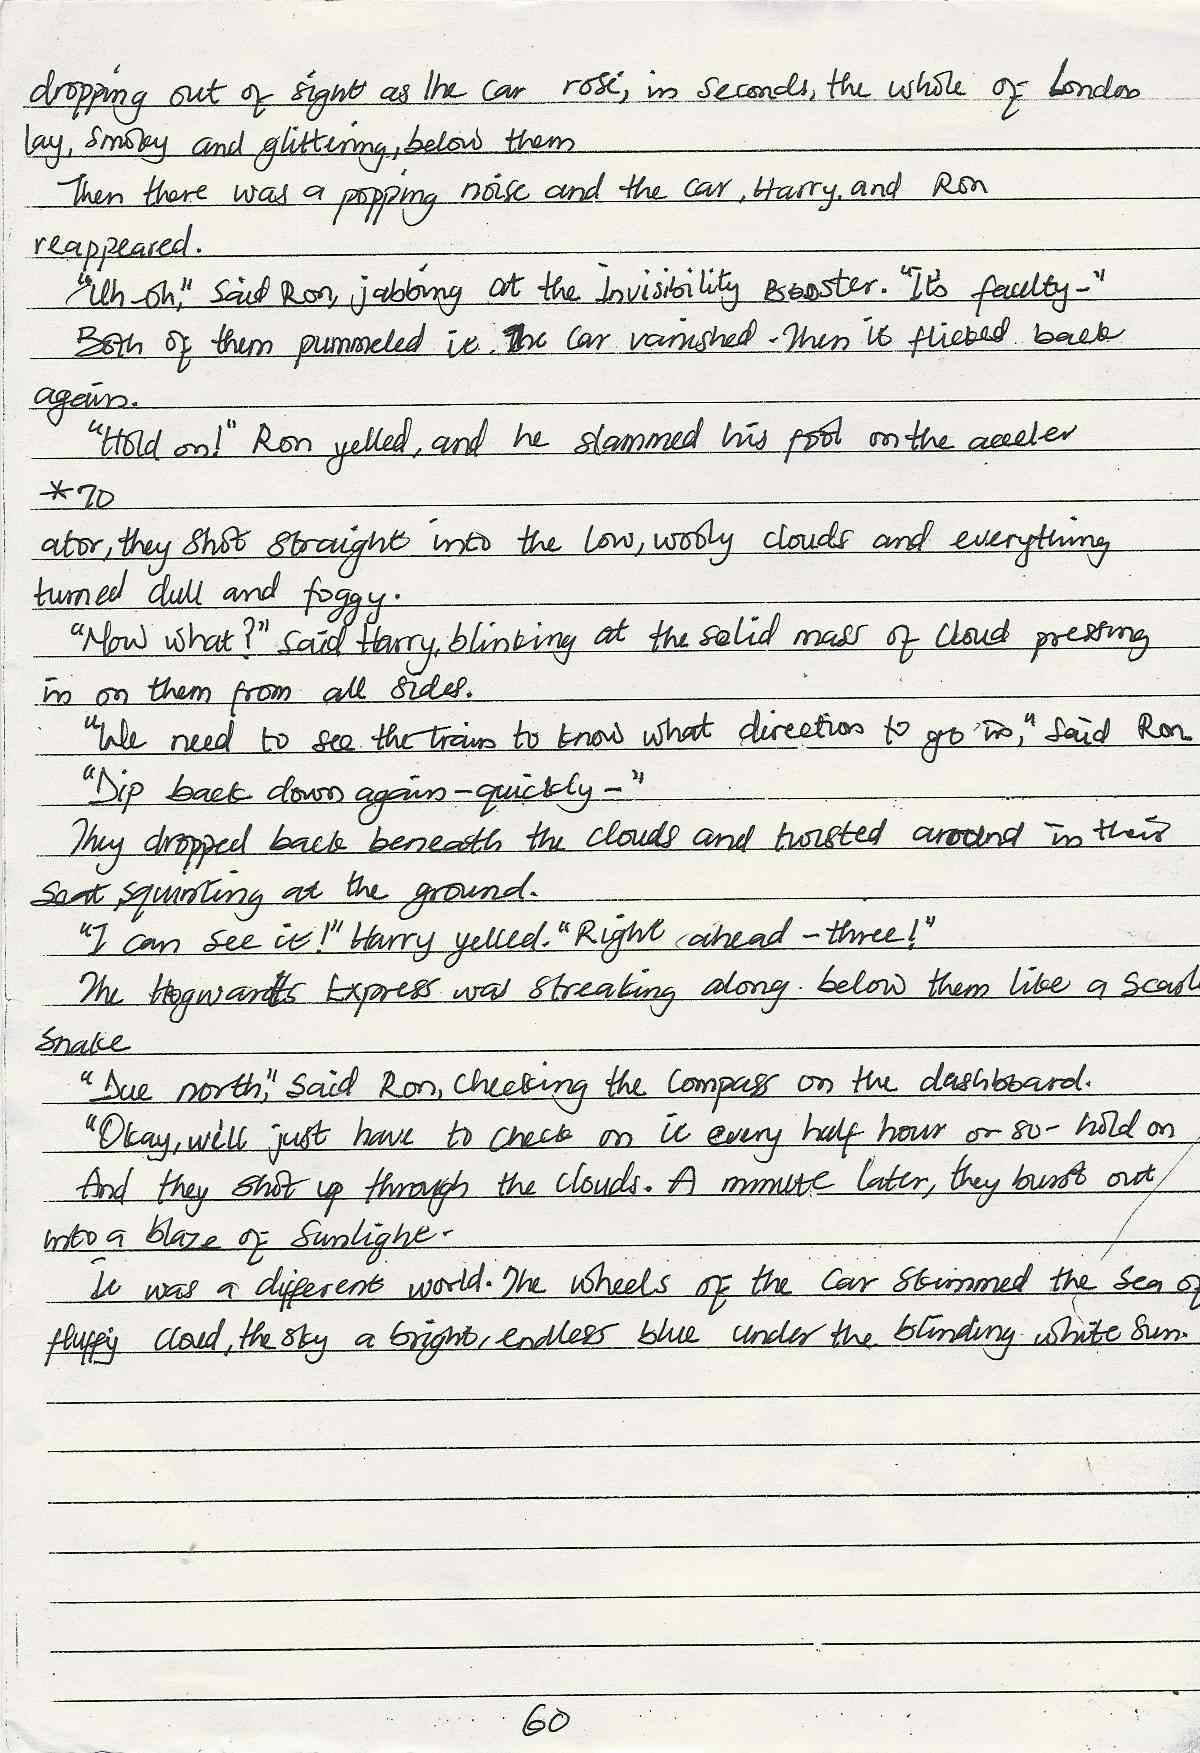 dropping out of sight as the car rose, in seconds, the whole of London
lay, smoky and glittering, below them
Then there was a popping noise and the car, Harry, and Ron
reappeared.
"Uh-oh," said Ron, jabbing at the Invisibility Booster. "It's faulty-"
Both of them pummeled it. The car vanished. Then it flicked back
again.
"Hold on!" Ron yelled, and he slammed his foot on the acceler
*70
ator, they shot straight into the low, wooly clouds and everything
turned dull and foggy.
"Now what?" said Harry, blinking at the solid mass of cloud pressing
in on them from all sides.
"We need to see the train to know what direction to go in," said Ron.
"Dip back down again-quickly-"
They dropped back beneath the clouds and twisted around in their
seat, squinting at the ground.
"I can see it!" Harry yelled. "Right ahead-three!"
The Hogwarts Express was streaking along below them like a
snake
"Due north," said Ron, checking the compass on the dashboard.
"Okay, we'll just have to check on it every half hour or so- hold on
And they shot up through the clouds. A minute later, they burst out
into a blaze of sunlight.
It was a different world. The wheels of the car skimmed the sea of
fluffy cloud, the sky a bright, endless blue under the blinding white sun.
60